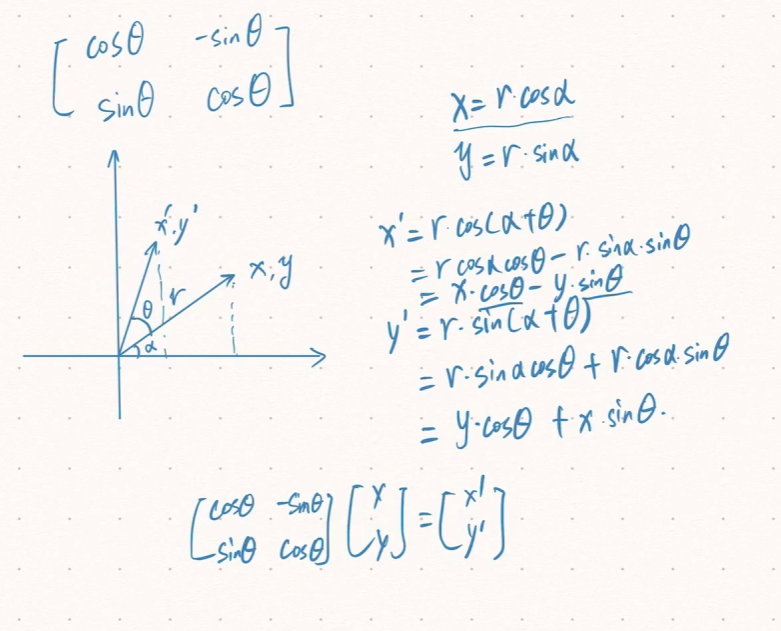 [cosθ -sinθ
sinθ cosθ]
x = r·cosα
y = r·sinα
x'.y'
x,y
r
θ
α
x' = r·cos(α+θ)
= r cosα cosθ - r·sinα·sinθ
= x·cosθ - y·sinθ
y' = r·sin(α+θ)
= r·sinα cosθ + r·cosα·sinθ
= y·cosθ + x·sinθ.
[cosθ -sinθ] [x] = [x']
[sinθ cosθ] [y] [y']